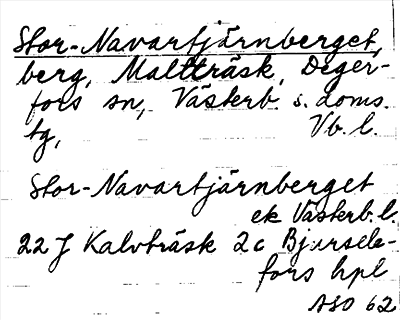 Stor-Navartjärnberget,
berg, Maltträsk, Deger-
fors sn, Västerb. s. doms.
tg, Vb. l.
Stor-Navartjärnberget
ek Västerb. l.
22 J Kalvträsk 2c Bjursele-
fors hpl
ASO 62